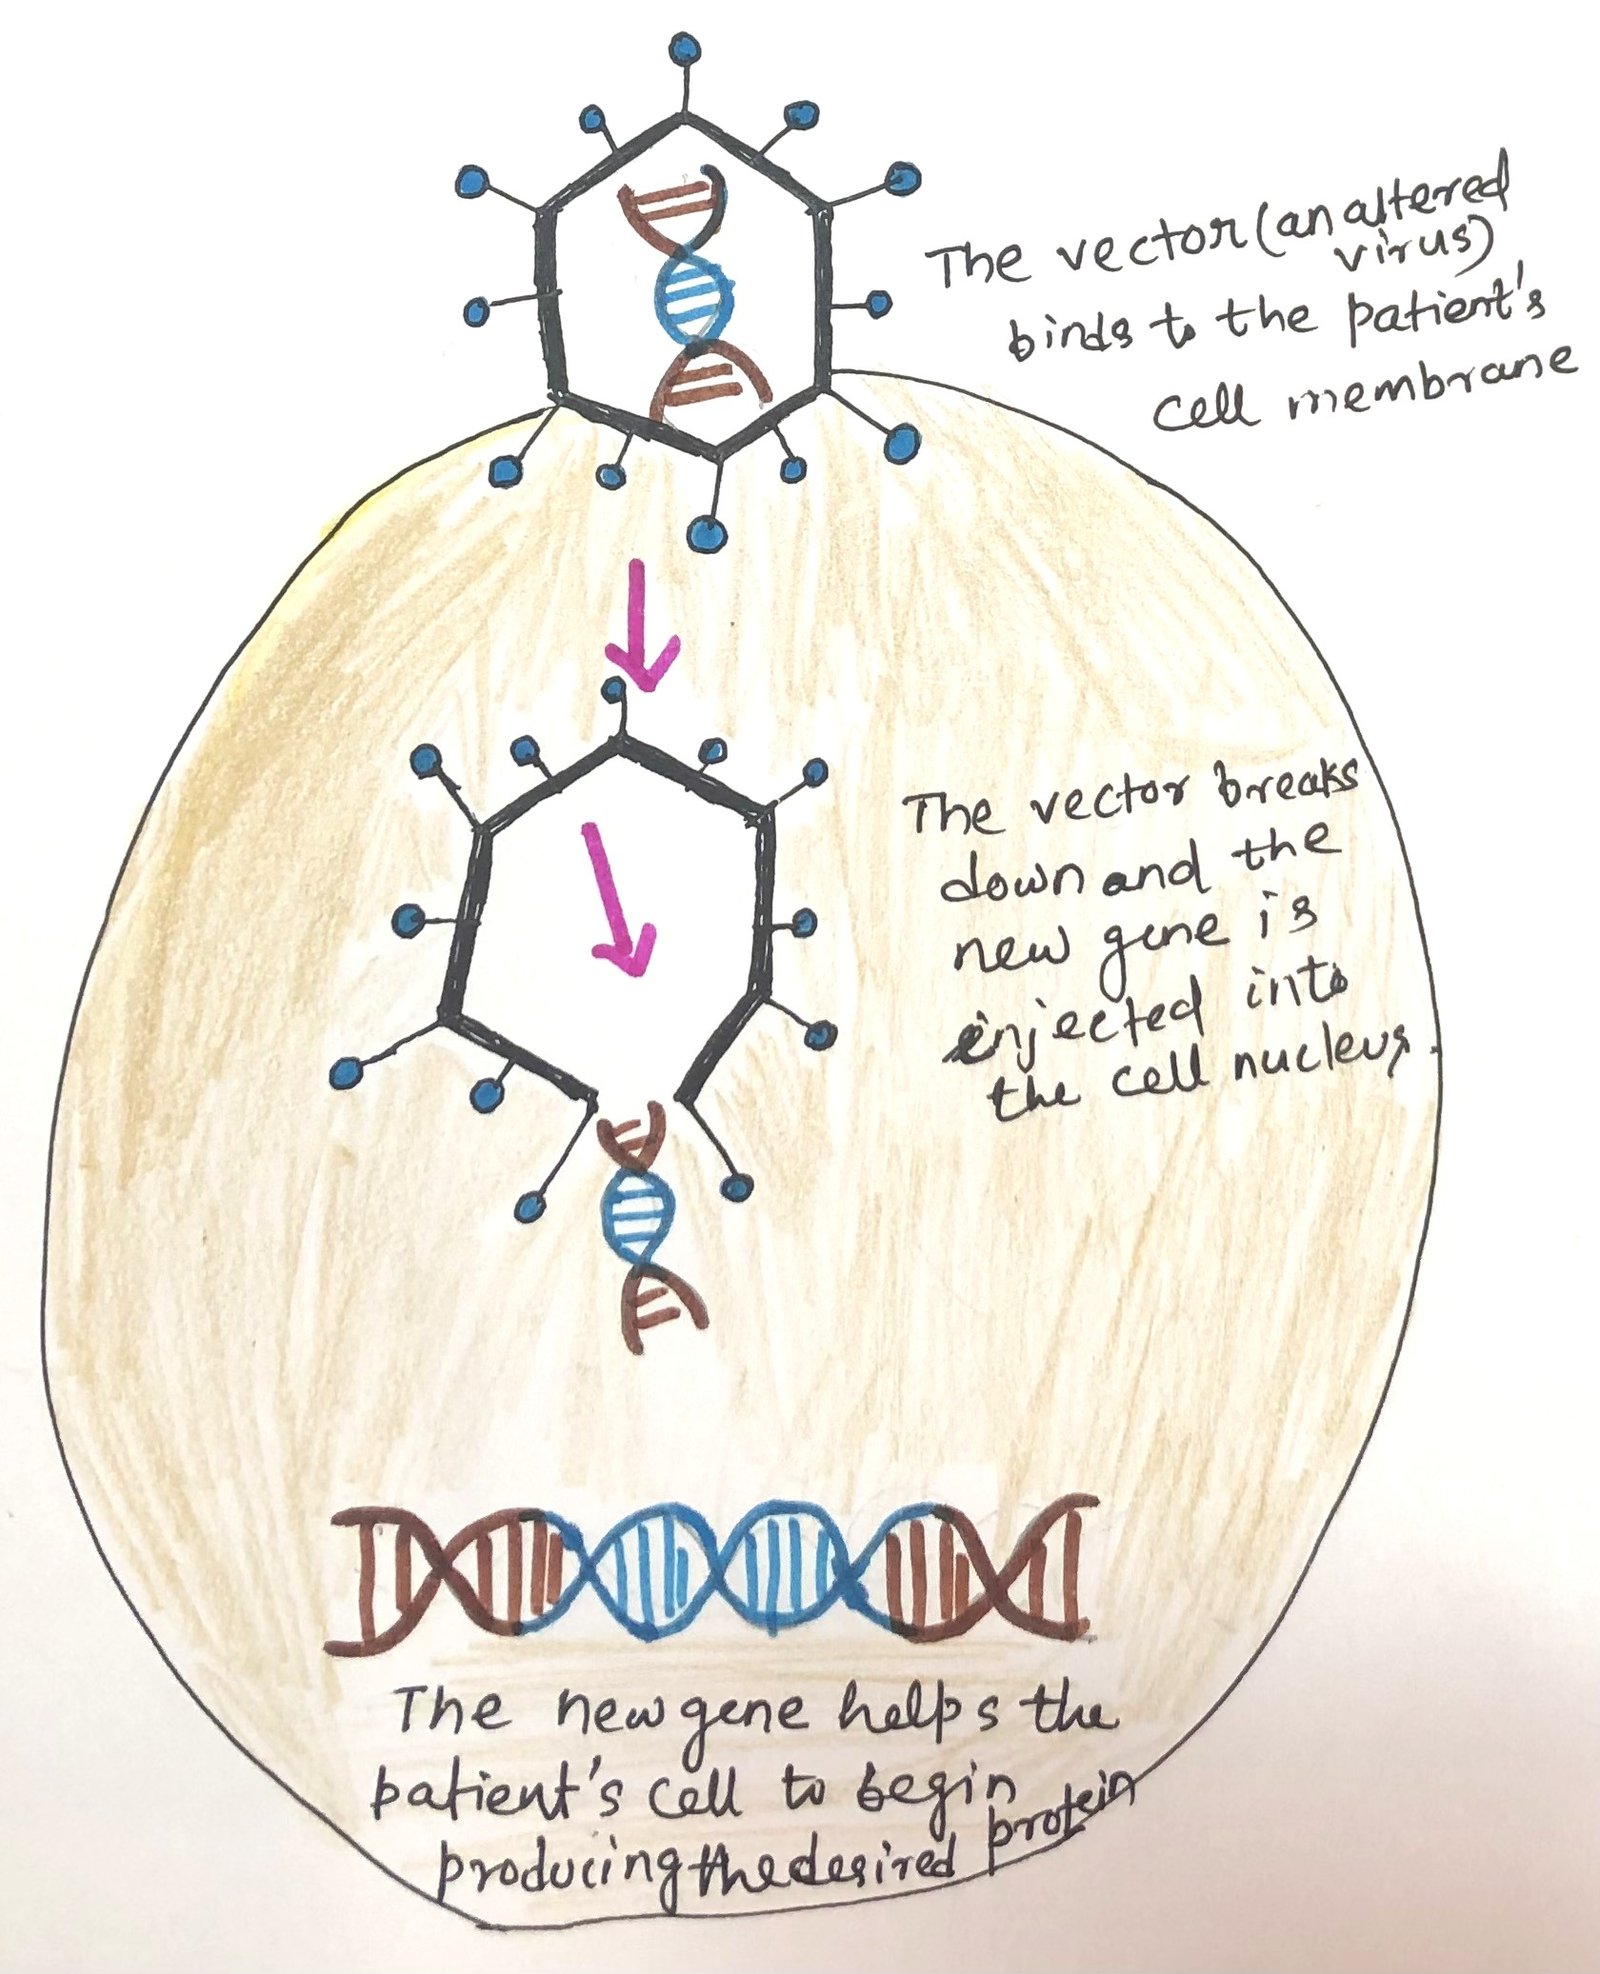 The vector (an altered
virus)
binds to the patient's
cell membrane
The vector breaks
down and the
new gene is
injected into
the cell nucleus.
The new gene helps the
patient's cell to begin
producing the desired protein